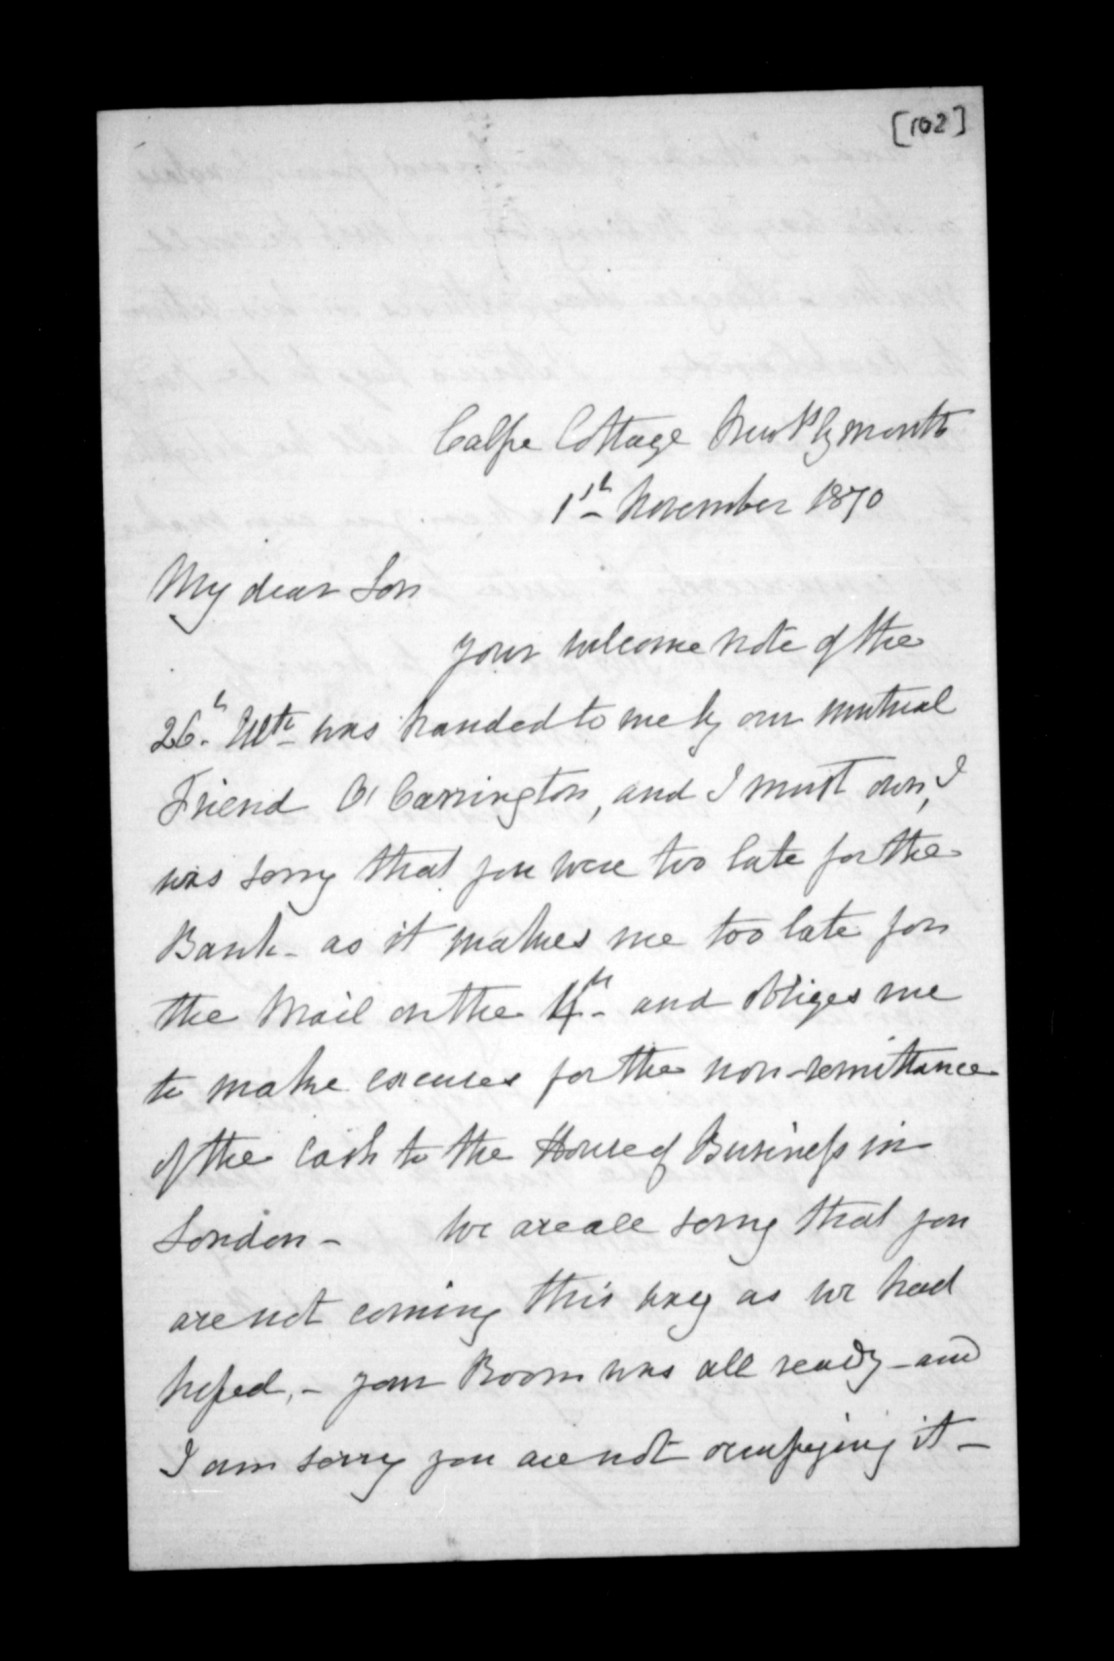 [102]
Calpe Cottage New Plymouth
1st November 1870
My dear Son
your welcome note of the
26th Ulto was handed to me by our mutual
Friend O' Carrington, and I must own, I
was sorry that you were too late for the
Bank - as it makes me too late for
the Mail on the 4th - and obliges me
to make excuses for the non-remittance
of the Cash to the House of Business in
London - We are all sorry that you
are not coming this way as we had
hoped, - your Room was all ready - and
I am sorry you are not occupying it -